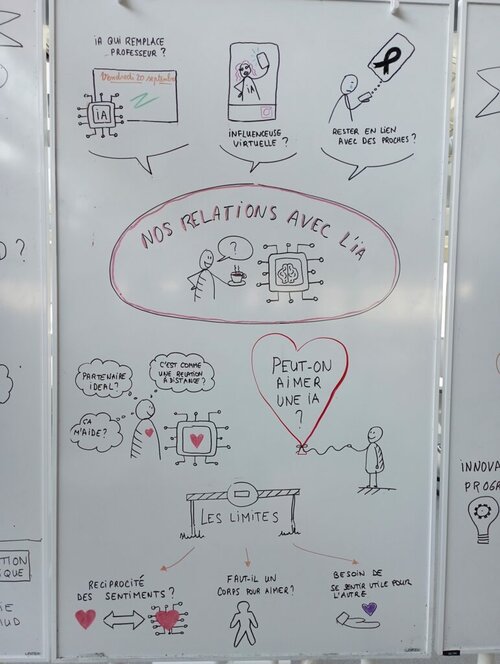 IA QUI REMPLACE
PROFESSEUR ?
Vendredi 20 septembre
IA
IA
INFLUENCEUSE
VIRTUELLE ?
RESTER EN LIEN
AVEC DES PROCHES ?
NOS RELATIONS AVEC L'IA
?
PARTENAIRE
IDEAL ?
C'EST COMME
UNE RELATION
À DISTANCE ?
ÇA
M'AIDE ?
PEUT-ON
AIMER
UNE IA
?
LES LIMITES
RECIPROCITÉ
DES SENTIMENTS ?
FAUT-IL UN
CORPS POUR AIMER ?
BESOIN DE
SE SENTIR UTILE POUR
L'AUTRE
?
INNOVA
PROGR
TION
IQUE
IE
AUD